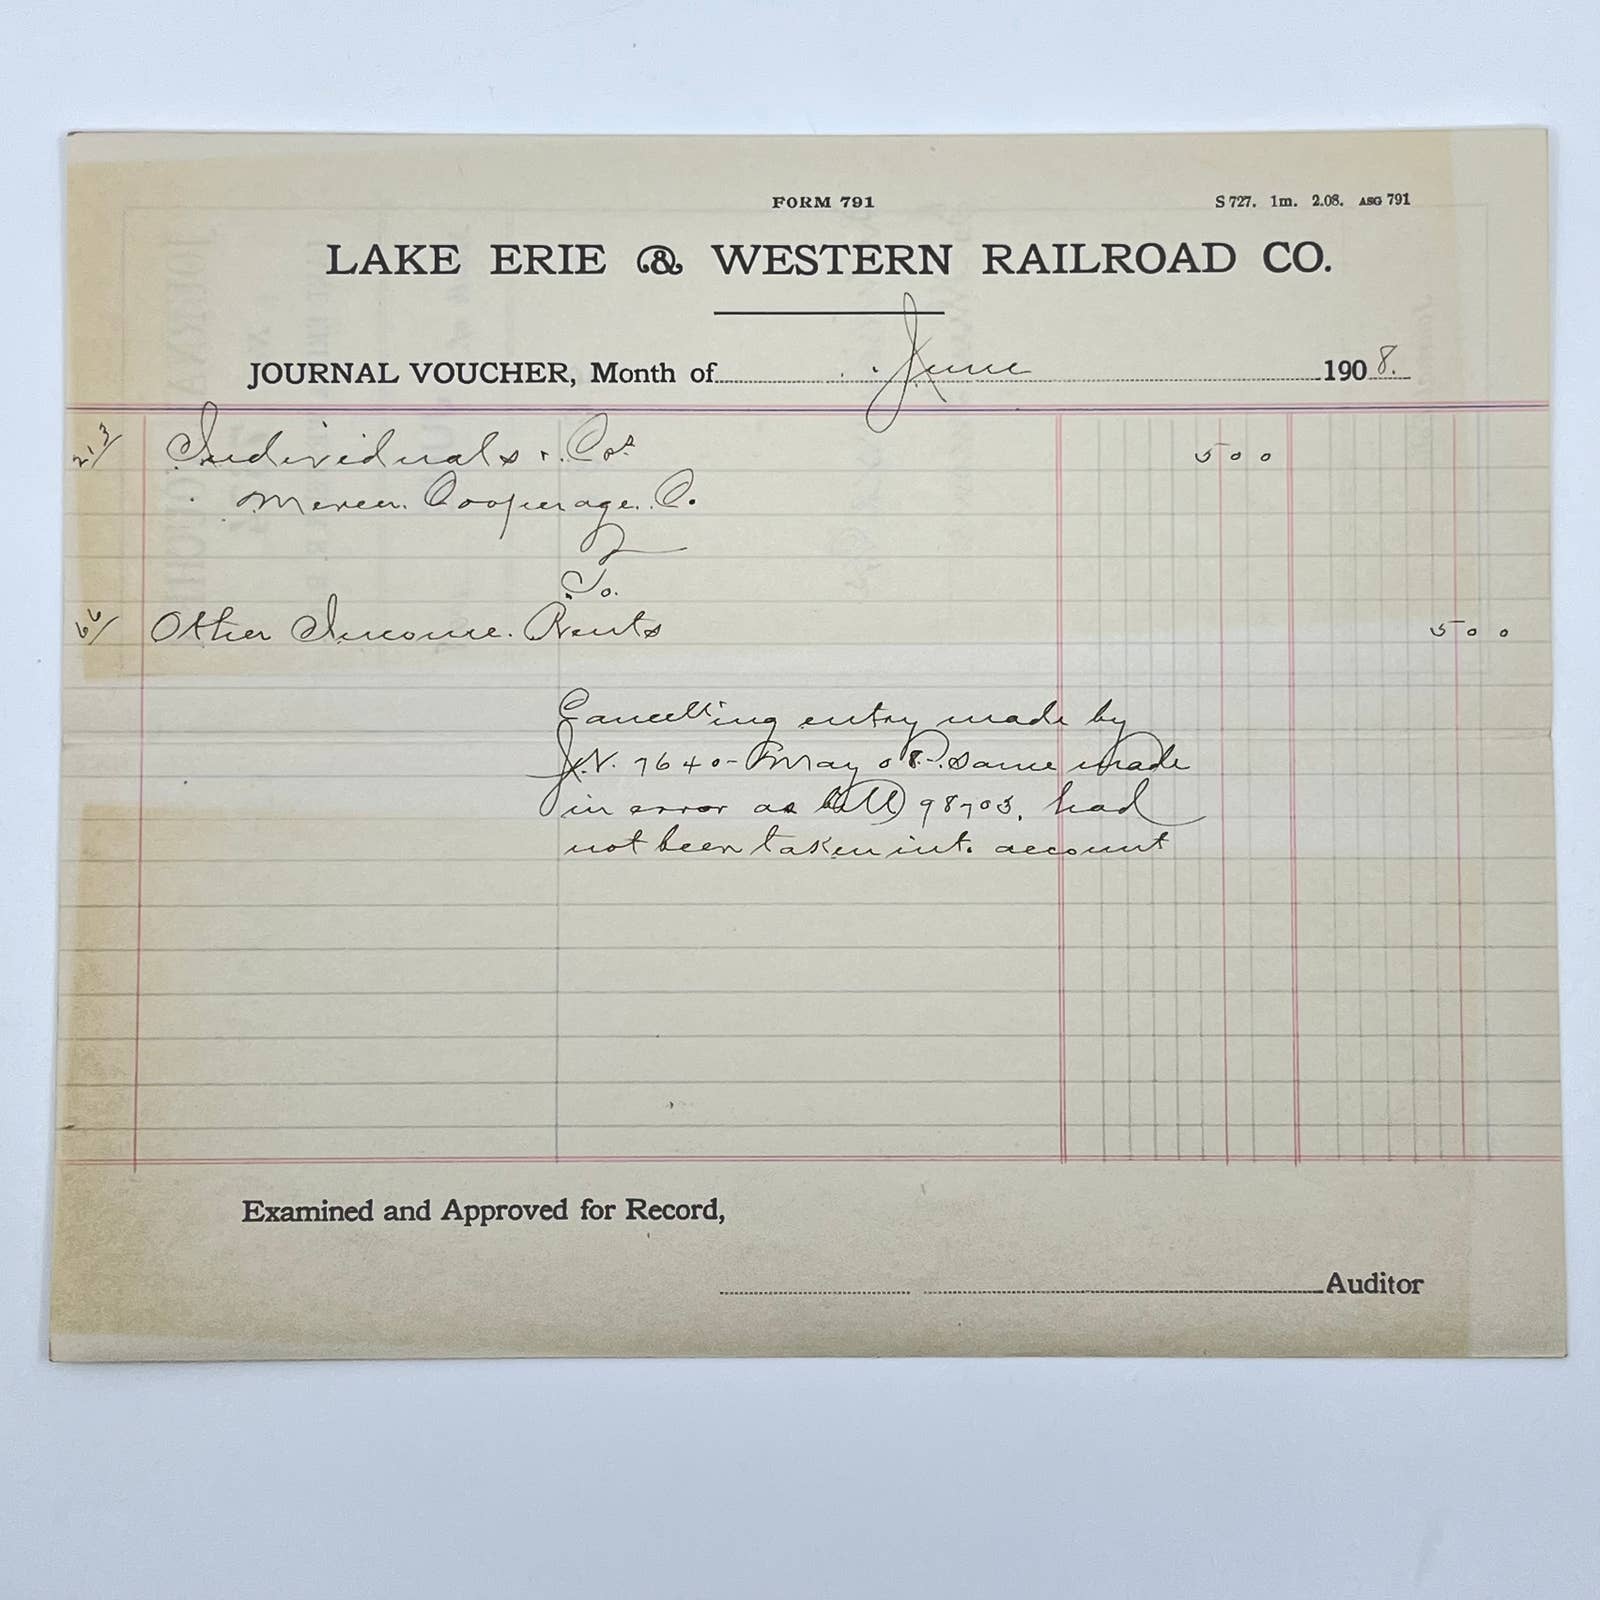 FORM 791
S 727. 1m. 2.08. ASG 791
LAKE ERIE & WESTERN RAILROAD CO.
JOURNAL VOUCHER, Month of June 1908.
213/ Individuals & Cos. 5 00
Cooperage Co.
To.
66/ Other Income. Rents 5 00
Cancelling entry made by
J.V. 7640 - May 08. same made
in error as bill 98703, had
not been taken into account
Examined and Approved for Record,
Auditor